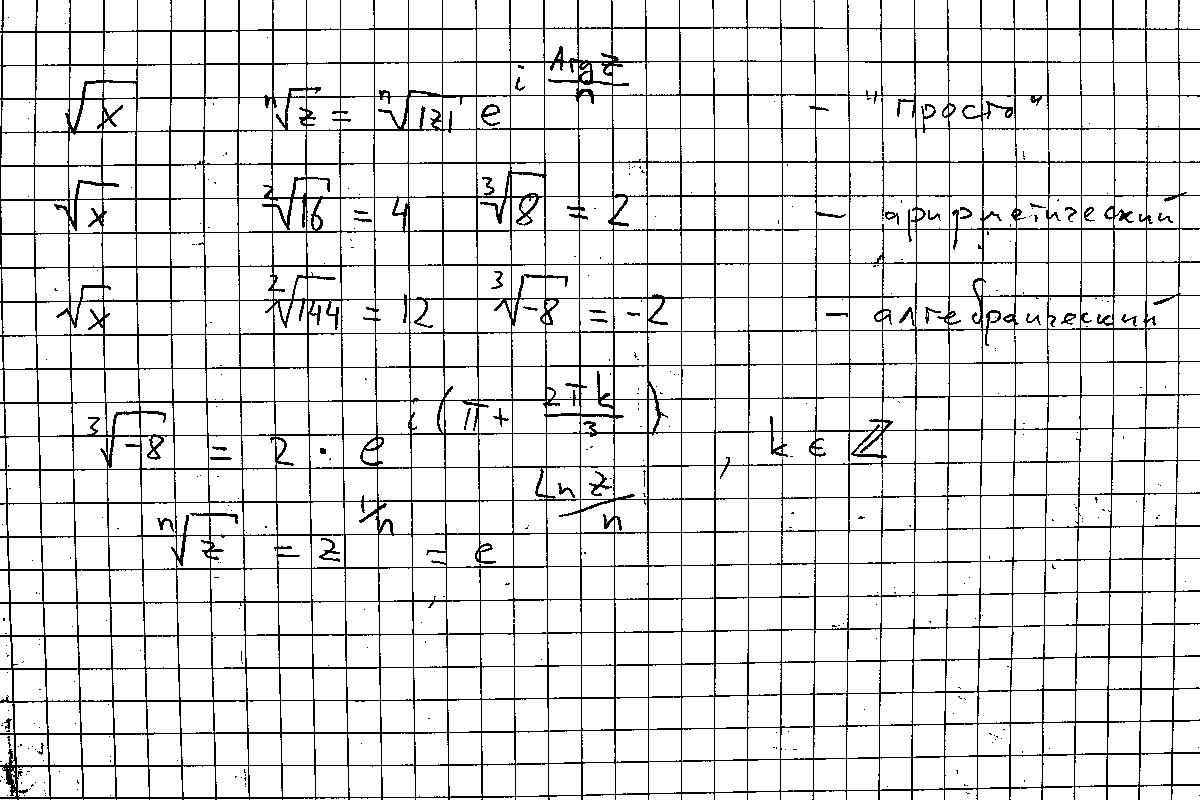 √x ⁿ√z = ⁿ√|z| e^(i Arg z / n) – "просто"
√x ²√16 = 4 ³√8 = 2 – арифметический
√x ²√144 = 12 ³√-8 = -2 – алгебраический
³√-8 = 2 · e^(i(π + 2πk/3)), k ∈ ℤ
ⁿ√z = z^(1/n) = e^(Ln z / n)